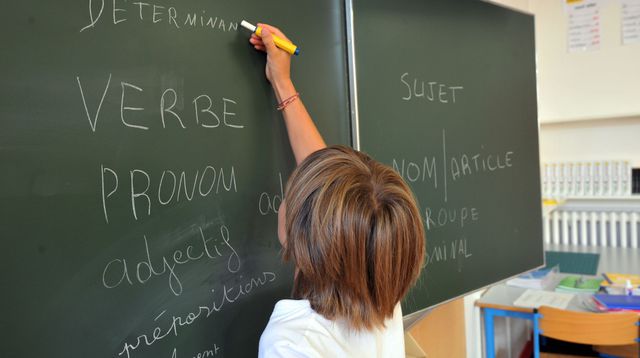 DÉTERMINAN
VERBE
PRONOM
adjectif
prépositions
SUJET
NOM/ARTICLE